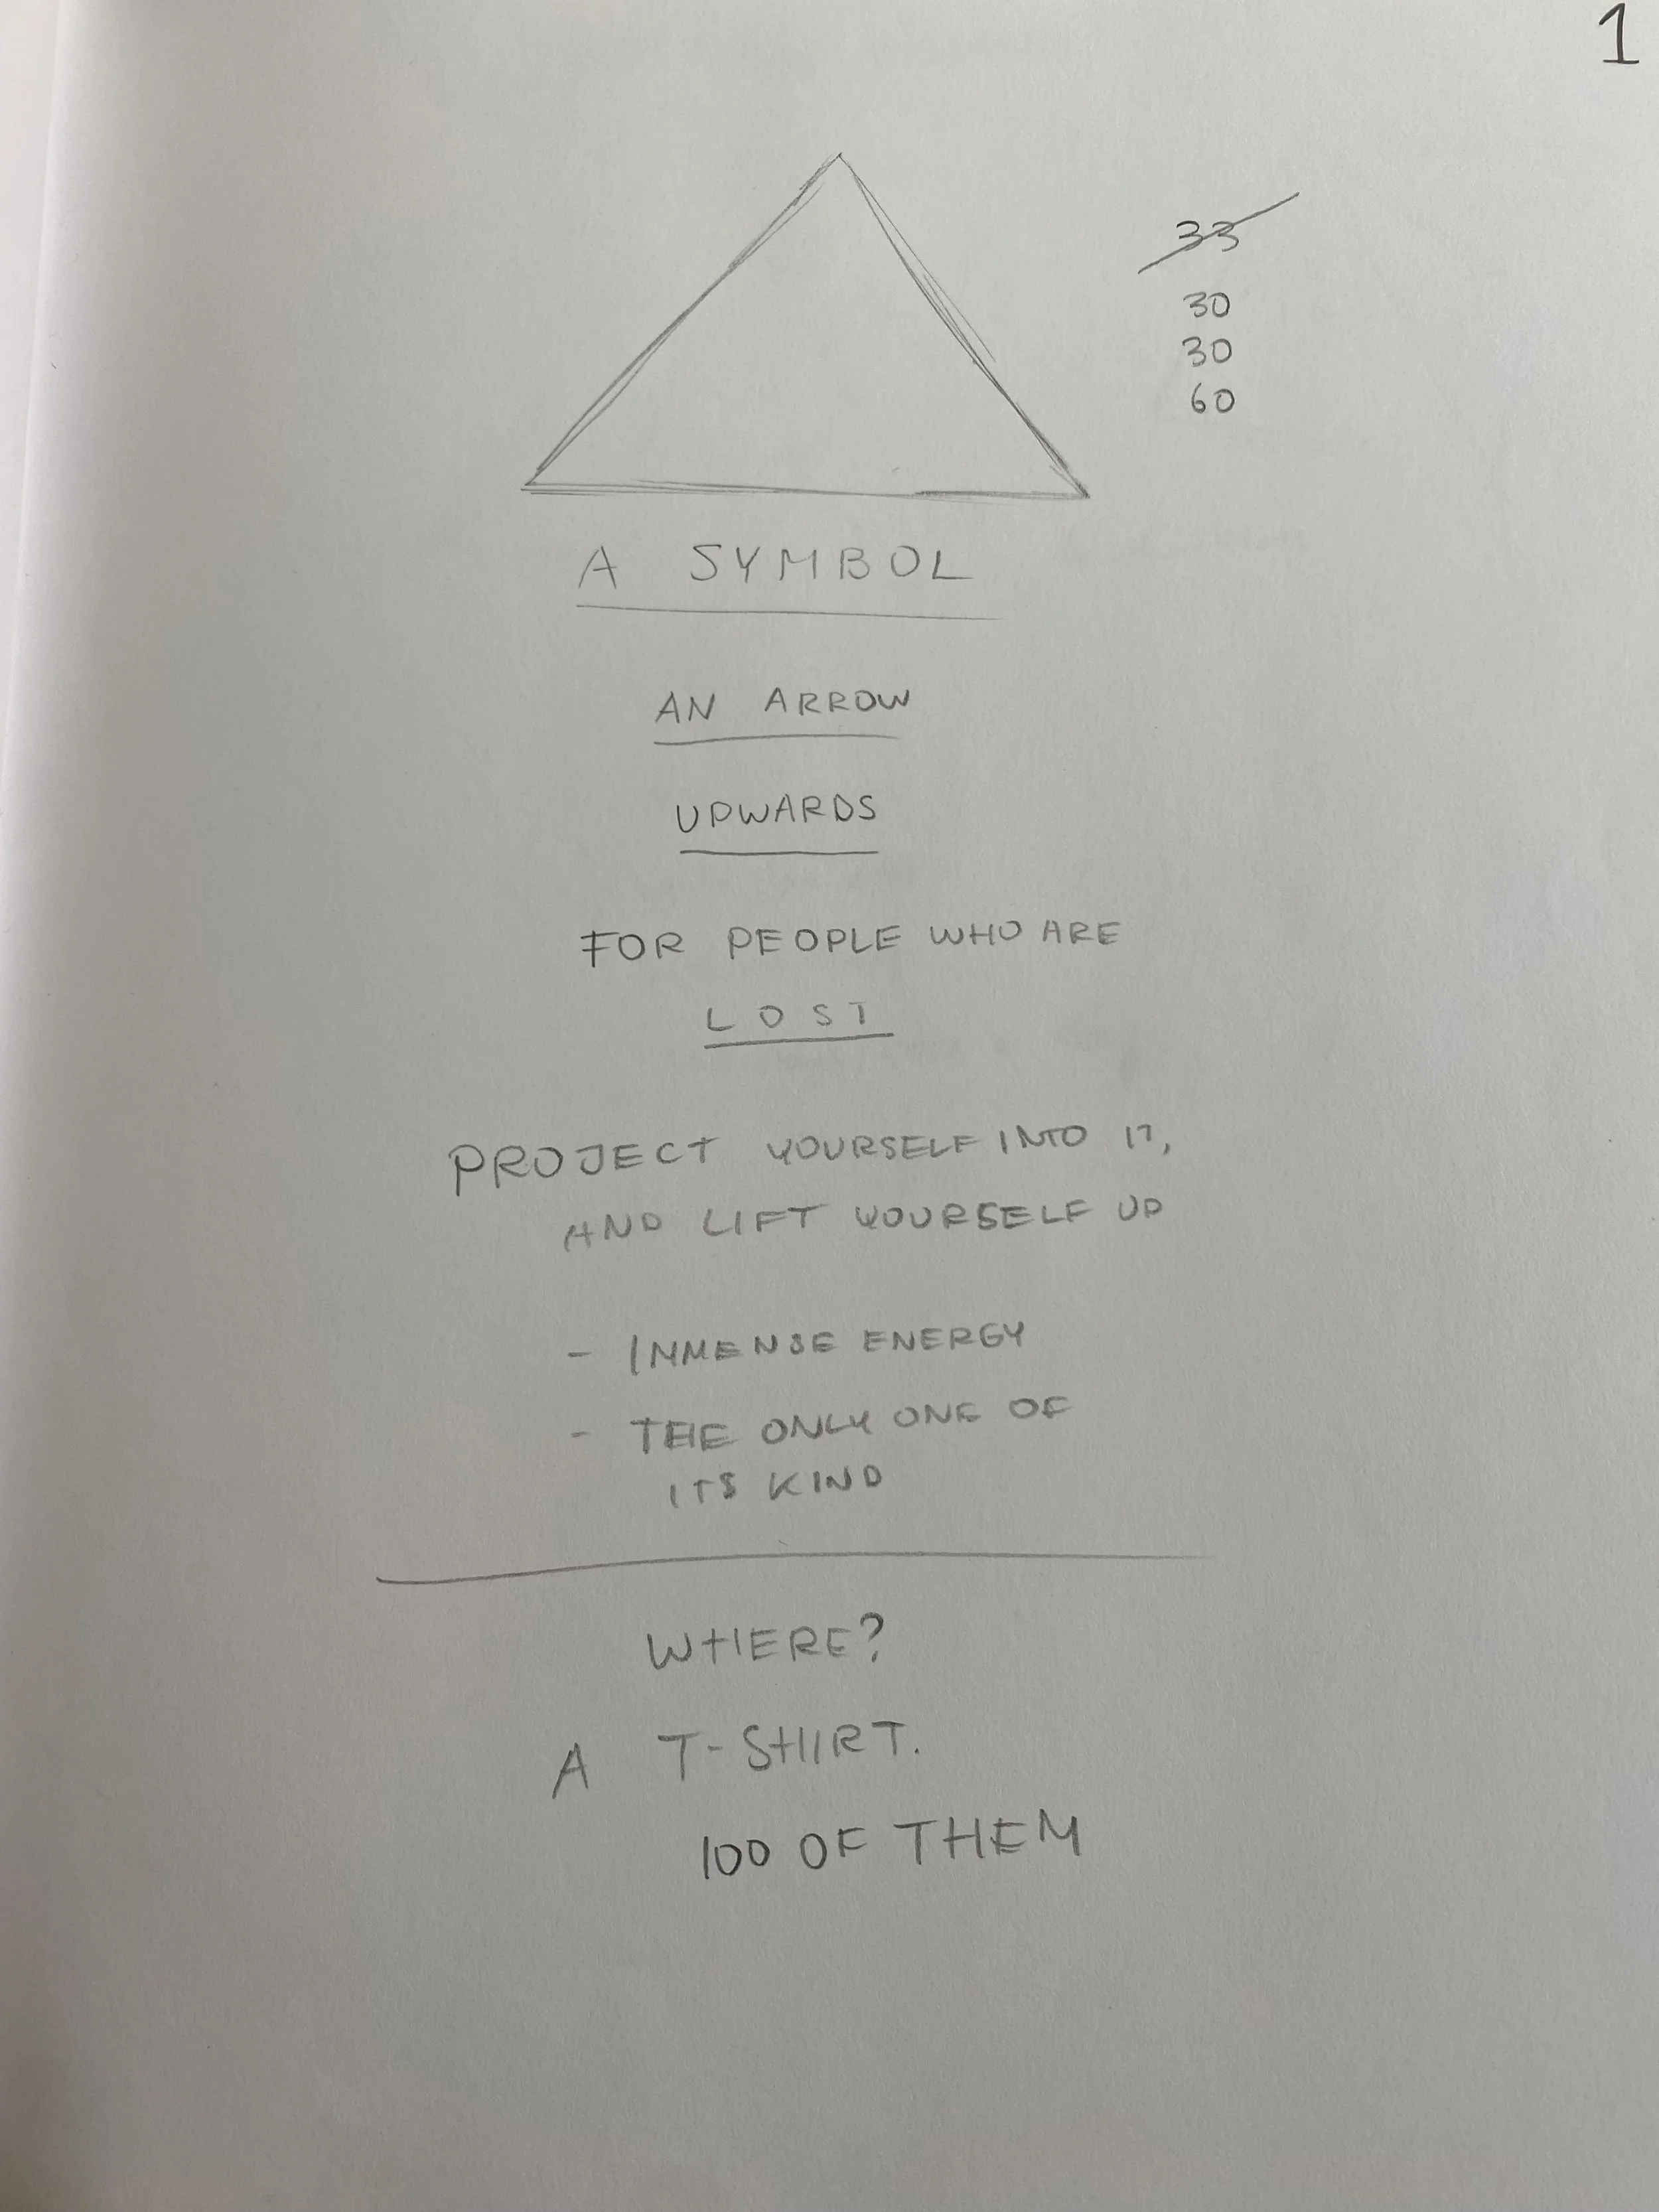 1
33
30
30
60
A SYMBOL
AN ARROW
UPWARDS
FOR PEOPLE WHO ARE
LOST
PROJECT YOURSELF INTO IT,
AND LIFT YOURSELF UP
- INMENSE ENERGY
- THE ONLY ONE OF
ITS KIND
WHERE?
A T-SHIRT.
100 OF THEM